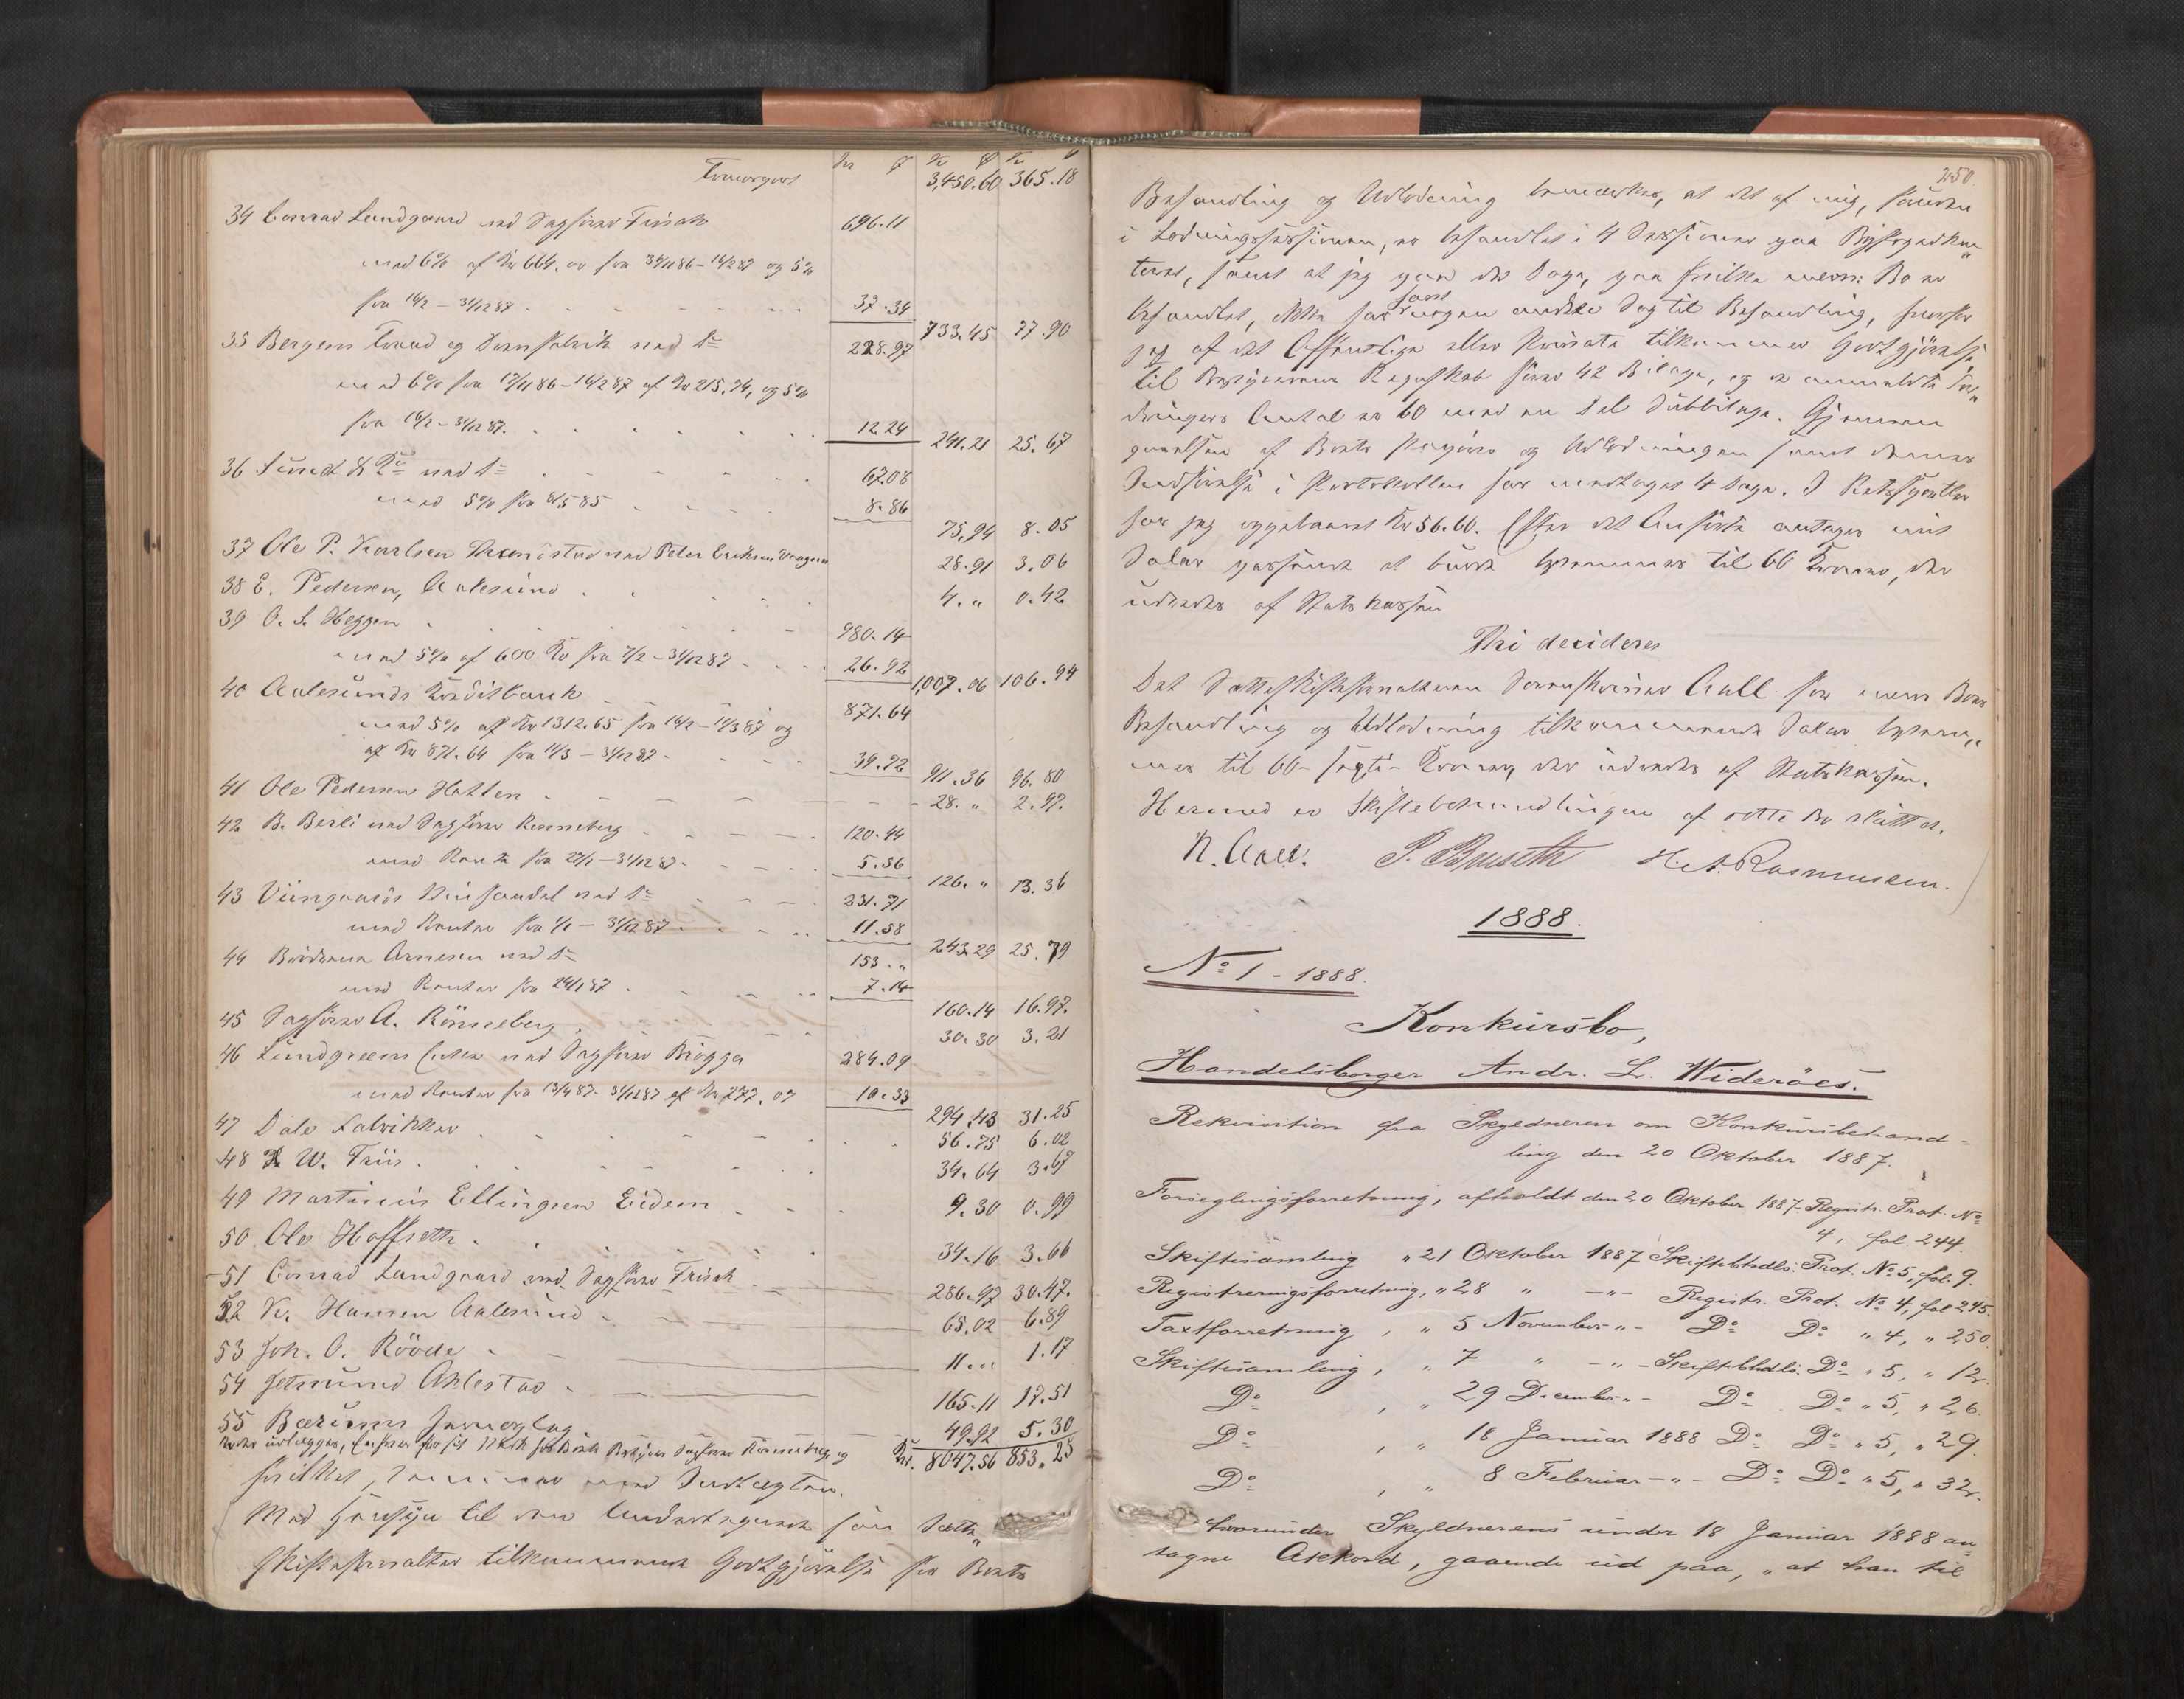 Transport
Kr Ø Kr Ø Kr Ø
3,450.60 365.18
34 Conrad Lundgaard ved Sagfører Frisch 696.11
med 6% af Kr 664,00 fra 30/1186-16/287 og 5%
fra 16/2 - 31/1287 . . . 37.34
733.45 77.90
35 Bergens Traad og Do 228.97
med 6% fra 17/1186-16/287 af Kr 215.74, og 5%
fra 16/2 - 31/1287. . . . 12.24
241.21 25.67
36 Sundt & Co ved Do . . . 67.08
med 5% fra 8/585 . . . 8.86
75,94 8.05
37 Ole P. Karlsen ved Peter Eriksen 28.91 3.06
38 E. Pedersen, Aalesund . . . 4. „ 0.42
39 O. S. Heggen . . . 980.14
med 5% af 600 Kr fra 7/2 - 31/1287 . . . 26.92
1,007.06 106.94
40 Aalesunds Kreditbank 871.64
med 5% af Kr 1312.65 fra 16/2 - 11/387 og
af Kr 871.64 fra 11/3 - 31/1287 . . . 39.72
911.36 96.80
41 Ole Pedersen Hatlen . . . 28. „ 2.97.
42 B. Berli ved Sagfører Rønneberg . . . 120.44
med Renter fra 27/1 - 31/1287 . . . 5.56
126. „ 13.36
43 Viingaards Viinhandel ved Do . . . 231.71
med Renter fra 1/1 - 31/1287 . . . 11.58
243.29 25.79
44 Brødrene Arnesen ved Do 153. „
med Renter fra 24/187 . . . 7.14
160.14 16.97.
45 Sagfører A. Rönneberg . . . 30.30 3.21
46 Lundgreens Enke ved Sagfører Brøgger 284.09
med Renter fra 13/487 - 31/1287 af Kr 272.07 10.33
294,43 31.25
47 Dale Fabrikker . . . 56.75 6.02
48 W. Friis . . . 34.64 3.67
49 Martinus Ellingsen Eidem . . . 9.30 0.99
50. Ole Hoffseth . . . 34.16 3.66
51 Conrad Lundgaard ved Sagfører Frisch . . . 286.97 30.47.
52 Kr. Hansen Aalesund . . . 65.02 6.89
53 Joh. O. Rööde . . . 11. „ 1.17
54 Jetmund Aklestad . . . 165.11 17.51
55 Bærums 49.92 5.30
Kr. 8047.56 853.25
hvilket, stemmer med Indtægten.
Med Hensyn til den undertegnede som Sætte„
skifteforvalter tilkommende Godtgjørelse for Boets
250.
Behandling og Udlodning bemærkes, at det af mig, foruden
i Lodningssessionen, er behandlet i 4 Sessioner paa Byfogedkon„
toret, samt at jeg paa de Dage, paa hvilke nævn: Bo er
behandlet, ikke har havt nogen anden Sag til Behandling, hvorfor
jeg af det Offentlige eller Private tilkommer Godtgjørelse
til Bestyrerens Regnskab hører 42 Bilage, og de anmeldte For„
dringers Antal er 60 med en Del Subbilage. Gjennem
gaaelsen af Boets og Udlodningen samt dennes
Indførelse i Protokollen har medtaget 4 Dage. I Retsgebyr
har jeg oppebaaret Kr 56.60. Efter det Anførte antages mit
Salær passende at burde bestemmes til 60 Kroner, der
udredes af Statskassen
Thi decideres
Det Sætteskifteforvalteren Aall for nævn Boes
Behandling og Udlodning tilkommende Salær bestem„
mes til 60 - sexti - Kroner, der udredes af Statskassen.
Hermed er Skiftebehandlingen af dette Bo sluttet.
N. Aall. P. Buseth H. A. Rasmussen.
1888.
No 1 - 1888.
Konkursbo,
Handelsborger Andr. L. Widerøes.
Rekvisition fra Skyldneren om Konkursbehand=
ling den 20 Oktober 1887.
Forseglingsforretning, afholdt den 20 Oktober 1887 Registr. Prot. No
4, fol 244.
Skiftesamling „ 21 Oktober 1887 Skiftebhdls. Prot. No 5, fol. 9.
Registreringsforretning, „ 28 „ - „ - Registr. Prot. No 4, fol 245.
Taxtforretning , „ 5 November - „ - Do Do „ 4, „ 250.
Skiftesamling , „ 7 „ - „ - Skiftebhdls. Do „ 5, „ 12.
Do , „ 29 December - „ - Do Do „ 5, „ 26.
Do , „ 18 Januar 1888 Do Do „ 5, „ 29.
Do , „ 8 Februar - „ - Do Do „ 5, „ 32.
hvorunder Skyldnerens under 18 Januar 1888 an=
tagne Akkord, gaaende ud paa, „at han til